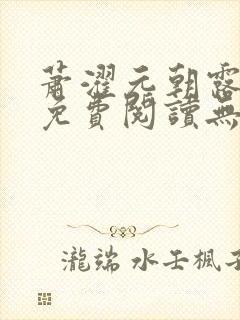 蕭濯元朝露
免費閱讀無
瀧端 水壬楓子